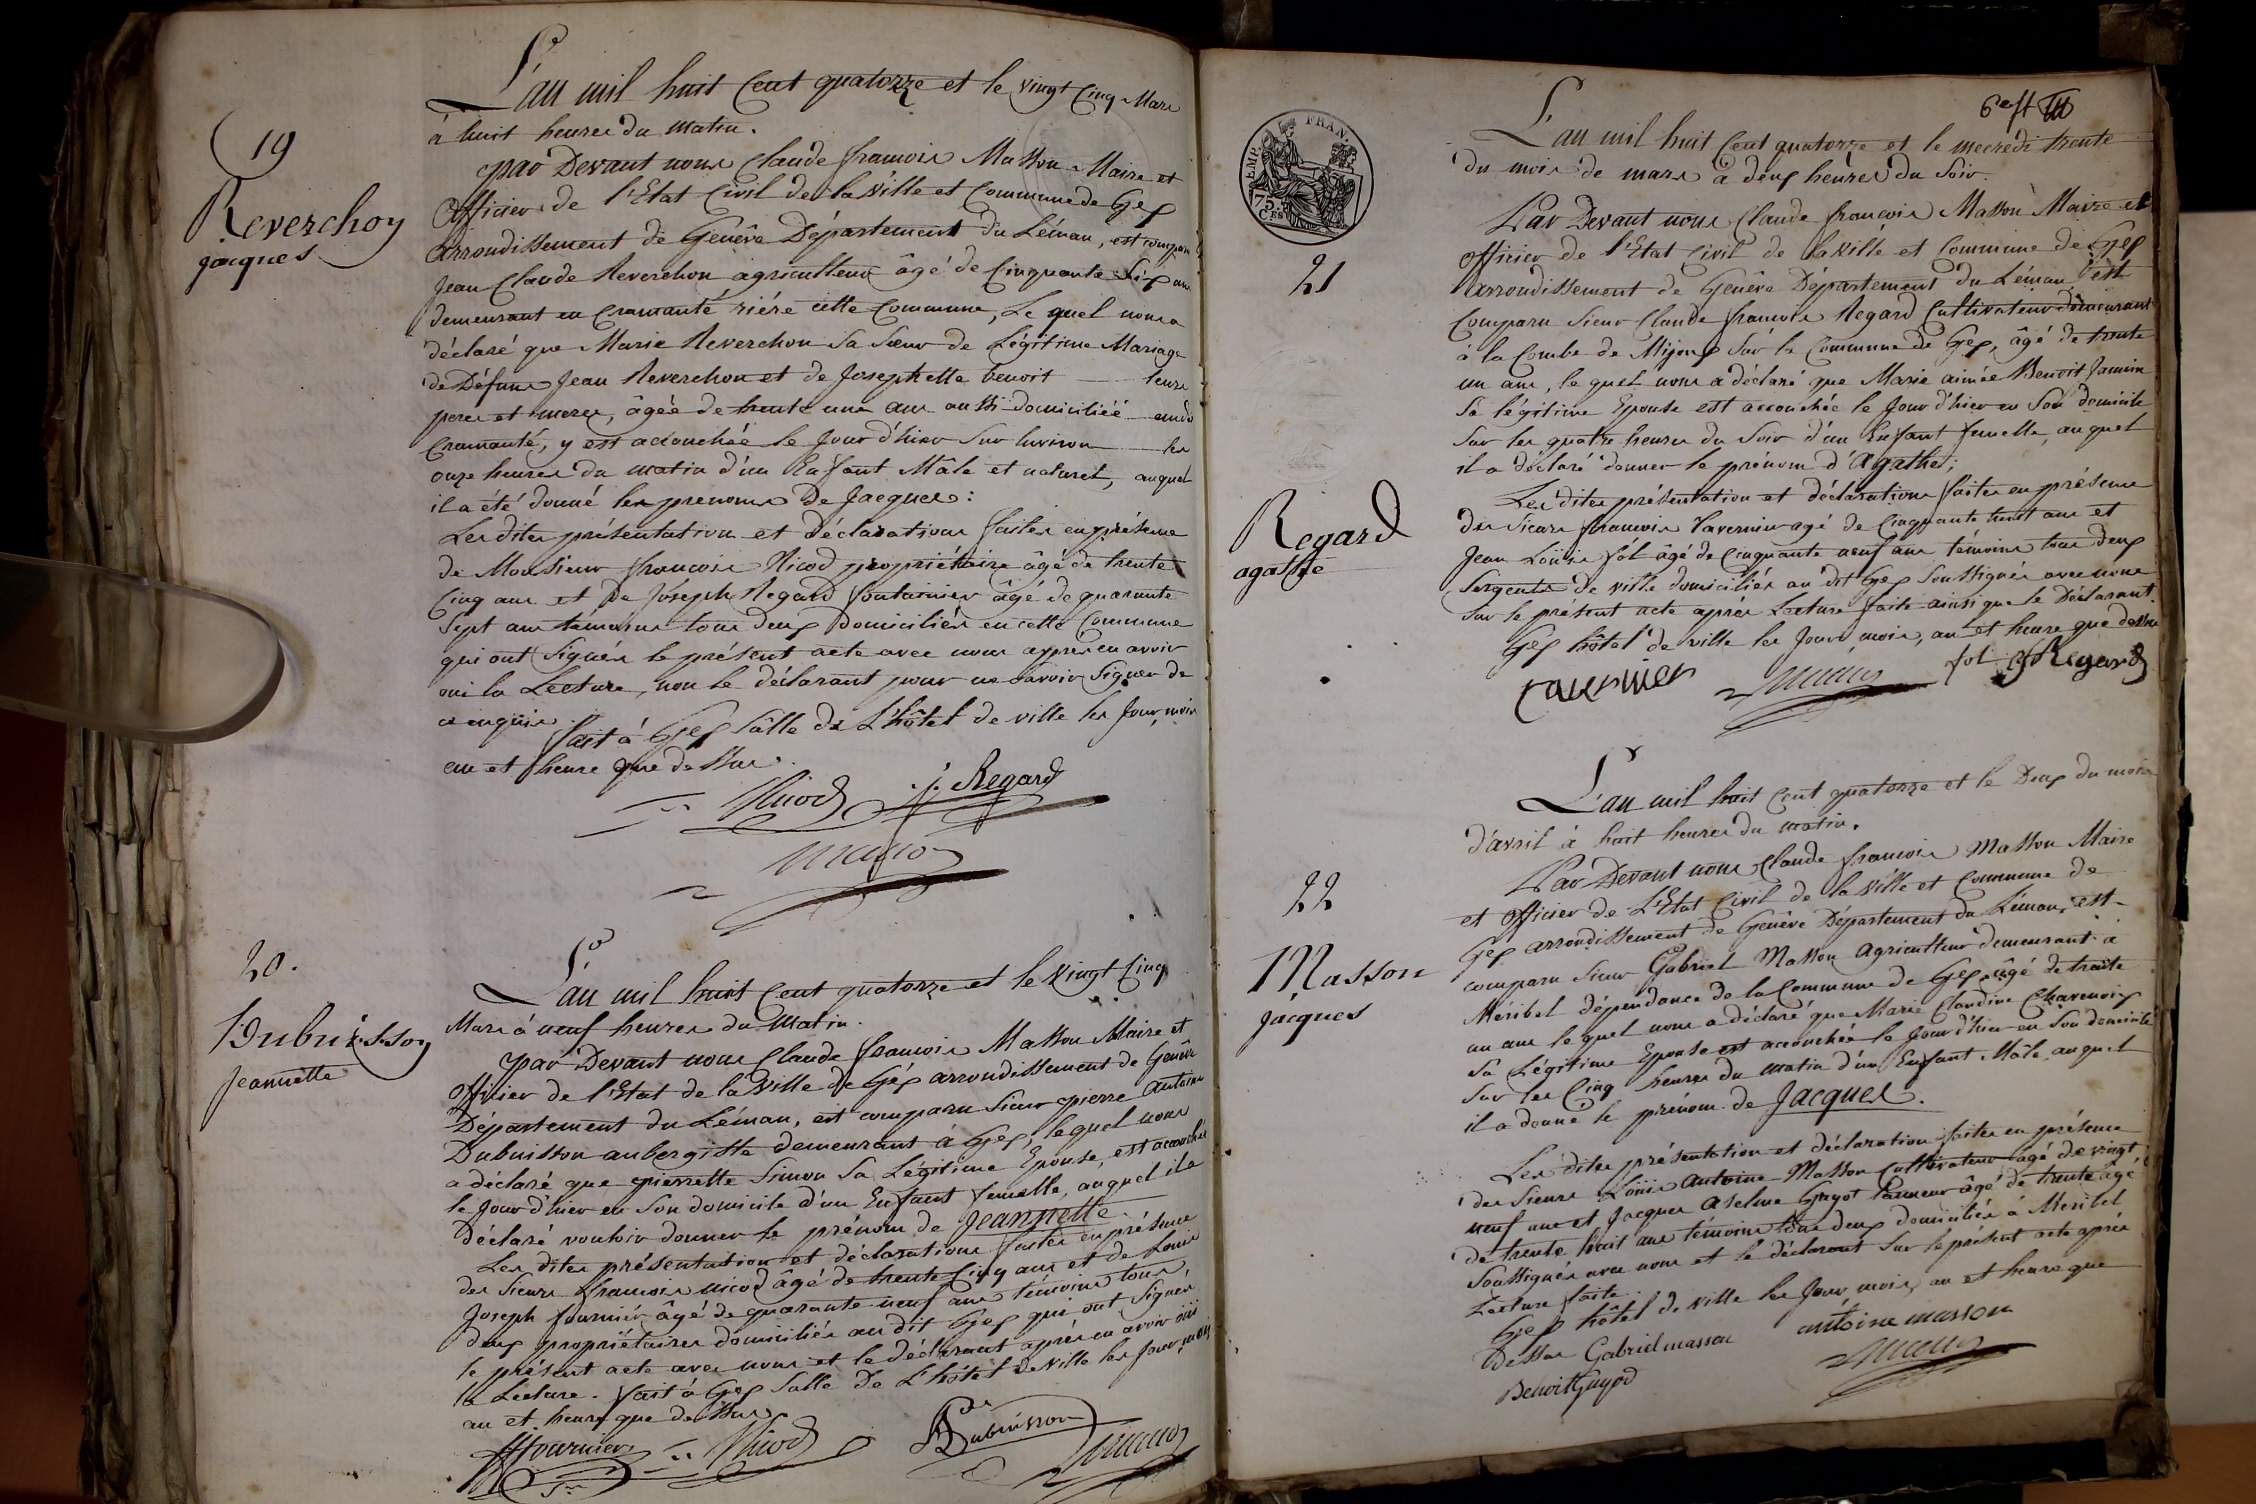 19
Reverchon
jacques
L'an mil huit Cent quatorze et le vingt Cinq Mars
à huit heures du matin.
par Devant nous Claude francois Masson Maire et
Officier de l'Etat Civil de la Ville et Commune de Gex
arrondissement de Genêve Département du Léman, est comparu
Jean Claude Reverchon agriculteur âgé de Cinquante Six ans
demeurant en Cramanté rière cette Commune, Le quel nous a
déclaré que Marie Reverchon Sa Sœur de Légitime Mariage
de Défuns Jean Reverchon et de Josephette benoit leurs
peres et meres, âgée de trente une ans aussi domiciliée audit
Cramanté, y est accouchée le Jour d'hier Sur Environ les
onze heures du matin d'un Enfant Mâle et naturel, auquel
il a été donné les prenoms De Jacques :
Les dites présentation et déclarations faites en présence
de Monsieur francois Nicod propriétaire âgé de trente
Cinq ans et De Joseph Regard fontainier âgé de quarante
Sept ans témoins tous deux Domiciliés en cette Commune
qui ont Signés le présent acte avec nous apprès en avoir
oui la Lecture, non le déclarant pour ne Savoir Signer de
ce enquis.
fait à Gex Sâlle de L'hôtel de ville les Jour, mois
an et heure que dessus.
Nicod J. Regard
Masson
20.
Dubuisson
jeannette
L'an mil huit Cent quatorze et le Vingt Cinq
Mars à neuf heures du Matin.
par Devant nous Claude francois Masson Maire et
Officier de l'Etat de la Ville de Gex arrondissement de Genêve
Département du Léman, est comparu Sieur pierre antoine
Dubuisson aubergiste demeurant à Gex, lequel nous
a déclaré que pierrette Simon Sa Légitime Epouse, est accouchée
le Jour d'hier en Son domicile d'un Enfant femelle, auquel il a
déclaré vouloir donner le prénom de Jeannette.
Les dites présentation et déclarations faites en présence
des Sieurs francois nicod âgé de trente Cinq ans et de Louis
Joseph fournier âgé de quarante neuf ans témoins tous
deux propriétaires domiciliés au dit Gex qui ont Signés
le présent acte avec nous et le déclarant après en avoir oüi
la Lecture. fait à Gex Salle De L'hôtel de Ville les Jour, mois
an et heure que dessus.
fournier Nicod Dubuisson Masson
EMP. FRAN.
75.
CES
6e ft
21
Regard
agathe
L'an mil huit Cent quatorze et le mecredi trente
du mois de mars à deux heures du Soir.
Par Devant nous Claude francois Masson Maire et
officier de l'Etat Civil de la Ville et Commune de Gex
arrondissement de Genêve Département du Léman, est
Comparu Sieur Claude francois Regard Cultivateur demeurant
à la Combe de Mijoux Sur la Commune de Gex, âgé de trente
un ans, le quel nous a déclaré que Marie aimée Benoit Jannin
Sa légitime Epouse est accouchée le Jour d'hier en Son domicile
Sur les quatre heures du Soir d'un Enfant femelle, auquel
il a déclaré donner le prénom d'Agathe ;
Les dites présentation et déclarations faites en présence
des Sieurs francois Tavernier agé de Cinquante huit ans et
Jean Loüis fôl âgé de Cinquante neuf ans témoins tous deux
Sergents de ville domiciliés au dit Gex Soussignés avec nous
Sur le présent acte apres Lecture faite ainsi que le Déclarant.
Gex hôtel de ville les Jour, mois, an et heure que dessus
tavernier Masson fol Regard
22
Masson
jacques
L'an mil huit Cent quatorze et le Deux du mois
d'avril à huit heures du matin.
Par Devant nous Claude francois Masson Maire
et Officier de L'Etat Civil de la Ville et Commune de
Gex arrondissement de Genêve Département du Léman, est
comparu Sieur Gabriel Masson Agriculteur demeurant à
Méribel dépendance de la Commune de Gex, âgé de trente
un ans le quel nous a déclaré que Marie Claudine
Sa Légitime Epouse est accouchée le Jour d'hier en Son domicile
Sur les Cinq heures du matin d'un Enfant Mâle auquel
il a donné le prénom de Jacques.
Les dites présentation et déclaration faites en présence
des Sieurs Loüis Antoine Masson Cultivateur agé de vingt
neuf ans et Jacques Aselme Guyot Tanneur âgé de trente âgé
de trente huit ans témoins tous deux domiciliés à Meribel
Soussignés avec nous et le déclarant Sur le présent acte après
Lecture faite.
Gex hôtel de Ville les Jour, mois, an et heure que
Dessus Gabriel masson antoine masson
Benoit Guyod Masson